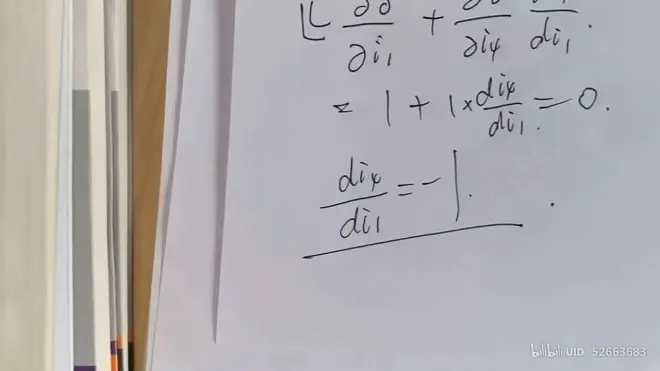 ∂i₁ + ∂i₄ di₁.
= 1 + 1 × di₄/di₁ = 0.
di₄/di₁ = -1.
bilibili UID 52663683